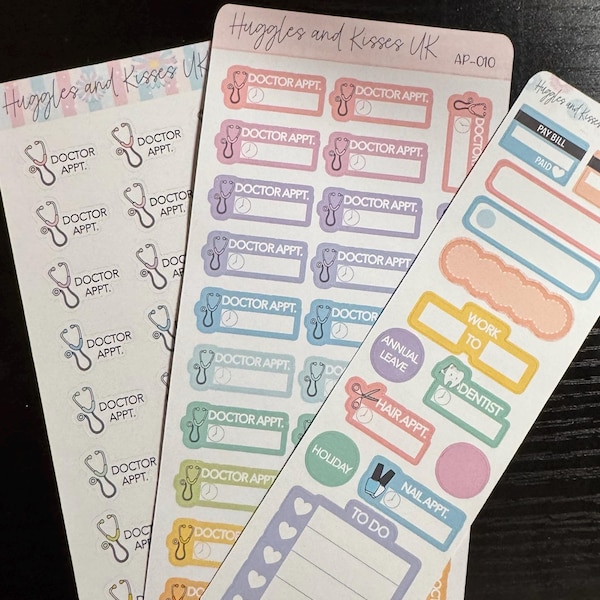 Huggles and Kisses UK
DOCTOR
APPT.
DOCTOR
APPT.
DOCTOR
APPT.
DOCTOR
APPT.
DOCTOR
APPT.
DOCTOR
APPT.
DOCTOR
APPT.
DOCTOR
APPT.
DOCTOR
APPT.
DOCTOR
APPT.
DOCTOR
APPT.
Huggles and Kisses UK
AP-010
DOCTOR APPT.
DOCTOR APPT.
DOCTOR
DOCTOR APPT.
DOCTOR APPT.
DOCTOR APPT.
DOCTOR APPT.
DOCTOR APPT.
DOCTOR APPT.
DOCTOR APPT.
DOCTOR APPT.
DOCTOR APPT.
DOCTOR APPT.
DOCTOR APPT.
DOCTOR APPT.
Huggles and Kisses
PAY BILL
PAID
WORK
TO
ANNUAL
LEAVE
DENTIST
HAIR APPT.
HOLIDAY
NAIL APPT.
TO DO